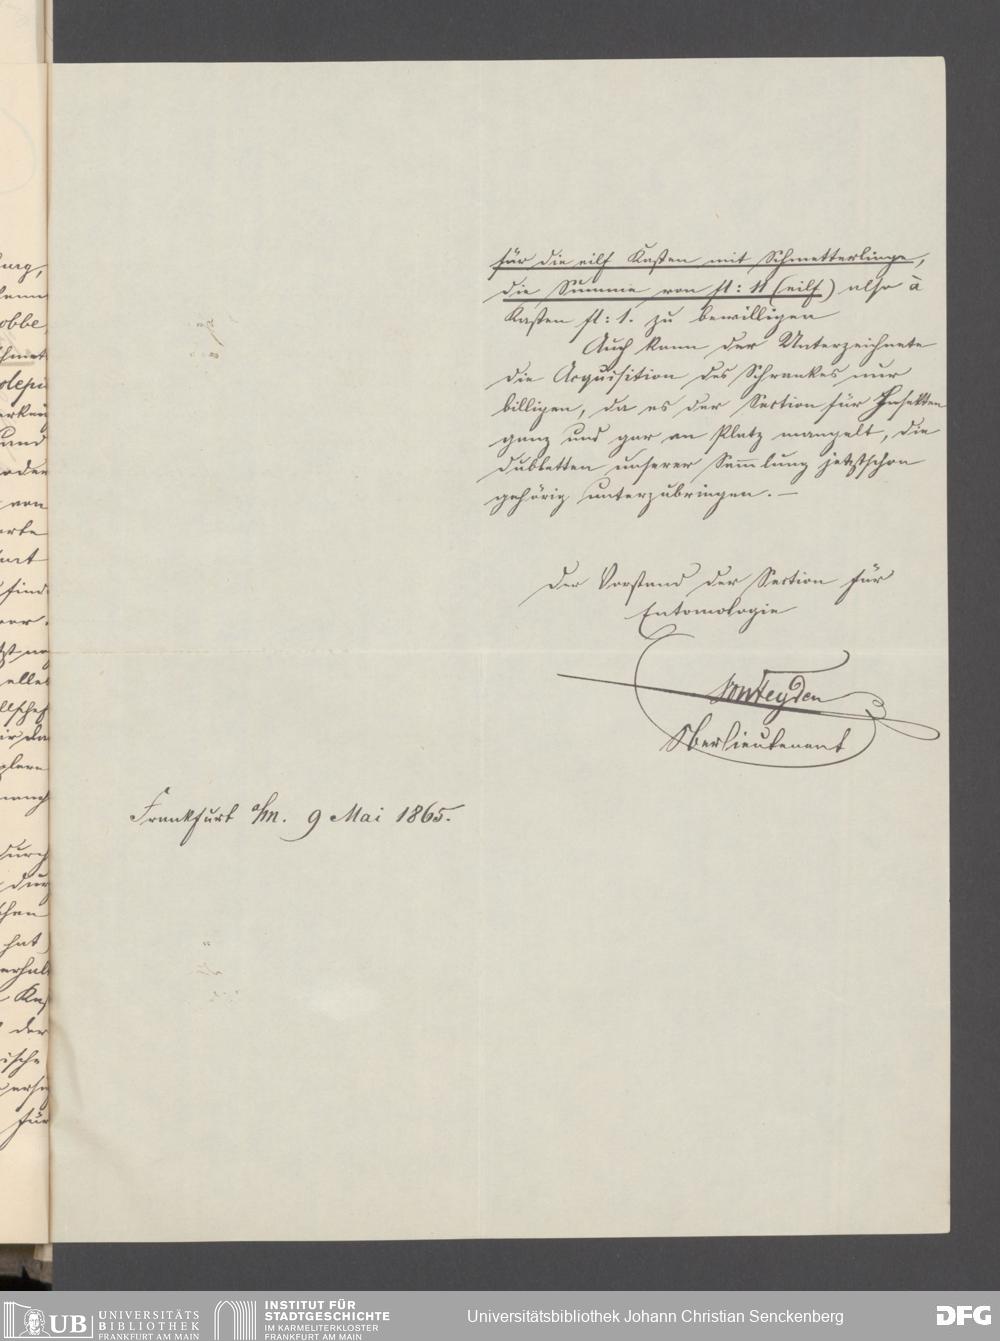 für die eilf Kasten mit Schmetterlinge,
die Summe von fl: 11 (eilf) also à
Kasten fl: 1. zu bewilligen
Auch kann der Unterzeichnete
die Acquisition des Schrankes nur
billigen, da es der Section für Insekten
ganz und gar an Platz mangelt, die
dubletten unserer Sammlung jetzt schon
gehörig unterzubringen. —
Der Vorstand der Section für
Entomologie
von Heyden
Oberlieutenant
Frankfurt a/m. 9 Mai 1865.
und
von
der
für
UB UNIVERSITÄTS
BIBLIOTHEK
FRANKFURT AM MAIN
INSTITUT FÜR
STADTGESCHICHTE
IM KARMELITERKLOSTER
FRANKFURT AM MAIN
Universitätsbibliothek Johann Christian Senckenberg
DFG